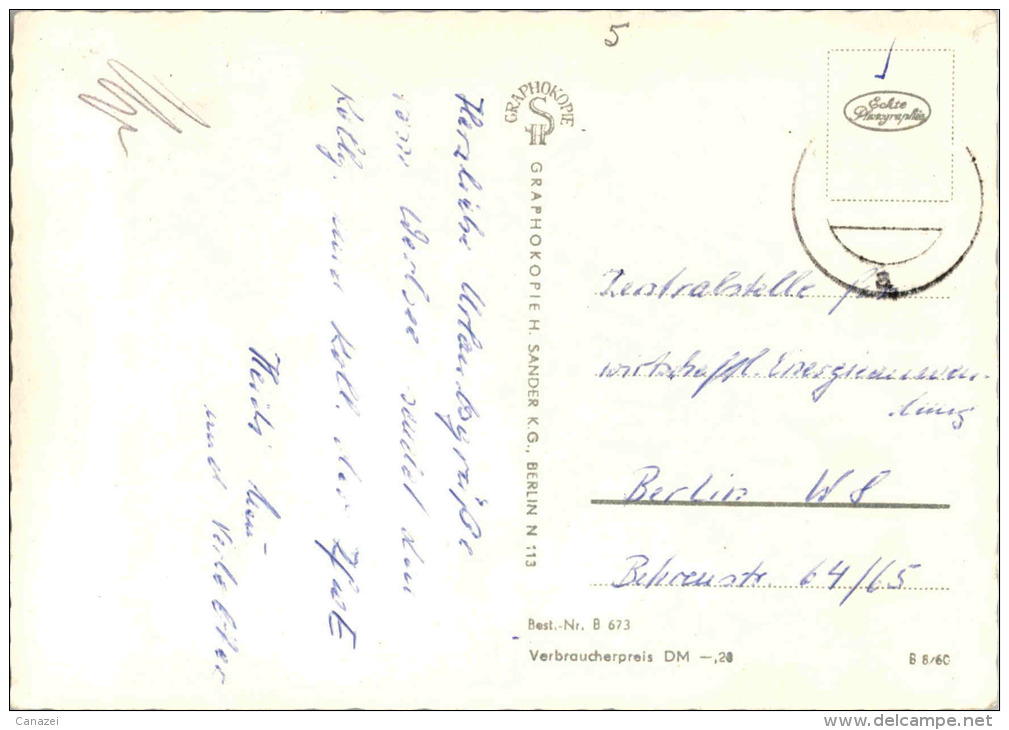 5
Herzliche Urlaubsgrüße
vom Werlsee sendet den
Kollg. und Koll. der ZfwE
Heidi
und
GRAPHOKOPIE
H S
GRAPHOKOPIE H. SANDER K.G., BERLIN N 113
Echte
Photographie
a
Zentralstelle für
wirtschaftl. Energieanwen-
dung
Berlin W 8
Behrenstr 64/65
Best.-Nr. B 673
Verbraucherpreis DM —,20
B 8/60
Canazei
www.delcampe.net